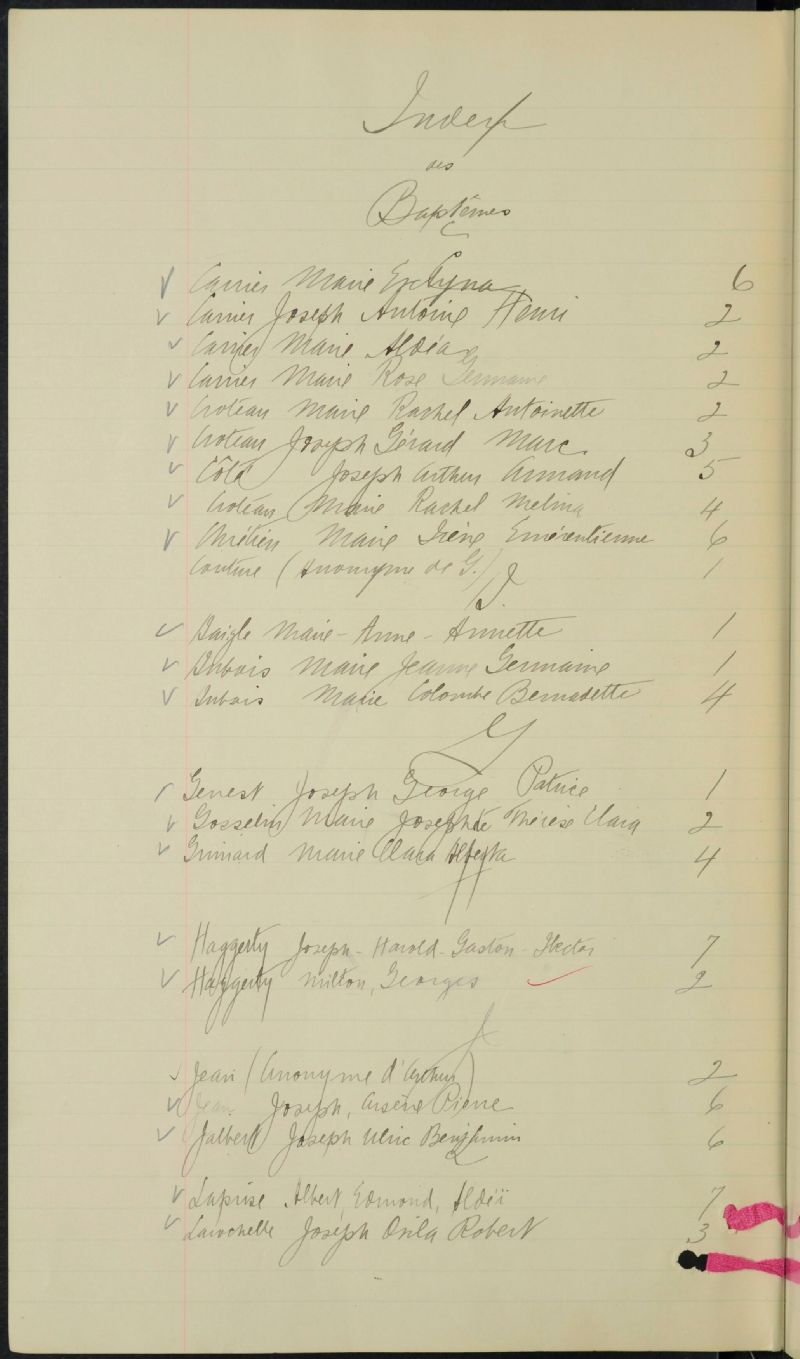 Index
des
Baptêmes
Carrier Marie Evelyna 6
Carrier Joseph Antoine Henri 2
Carrier Marie Aldéa 2
Carrier Marie Rose Germaine 2
Croteau Marie Rachel Antoinette 2
Croteau Joseph Gérard Marc 3
Côté Joseph Arthur Armand 5
Croteau Marie Rachel Melina 4
Chrétien Marie Irène Emérentienne 6
Couture (Anonyme de G.) 1
D
Daigle Marie-Anne-Annette 1
Dubois Marie Jeanne Germaine 1
Dubois Marie Colombe Bernadette 4
G
Genest Joseph George Patrice 1
Gosselin Marie Josephte Thérèse Clara 2
Grimard Marie Clara Alberta 4
H
Haggerty Joseph-Harold-Gaston-Hector 7
Haggerty Milton, Georges 2
J
Jean (Anonyme d'Arthur) 2
Jean Joseph, Arsène Pierre 6
Jalbert Joseph Ulric Benjamin 6
Laprise Albert Edmond, Aldéï 7
Larochelle Joseph Orila Robert 3